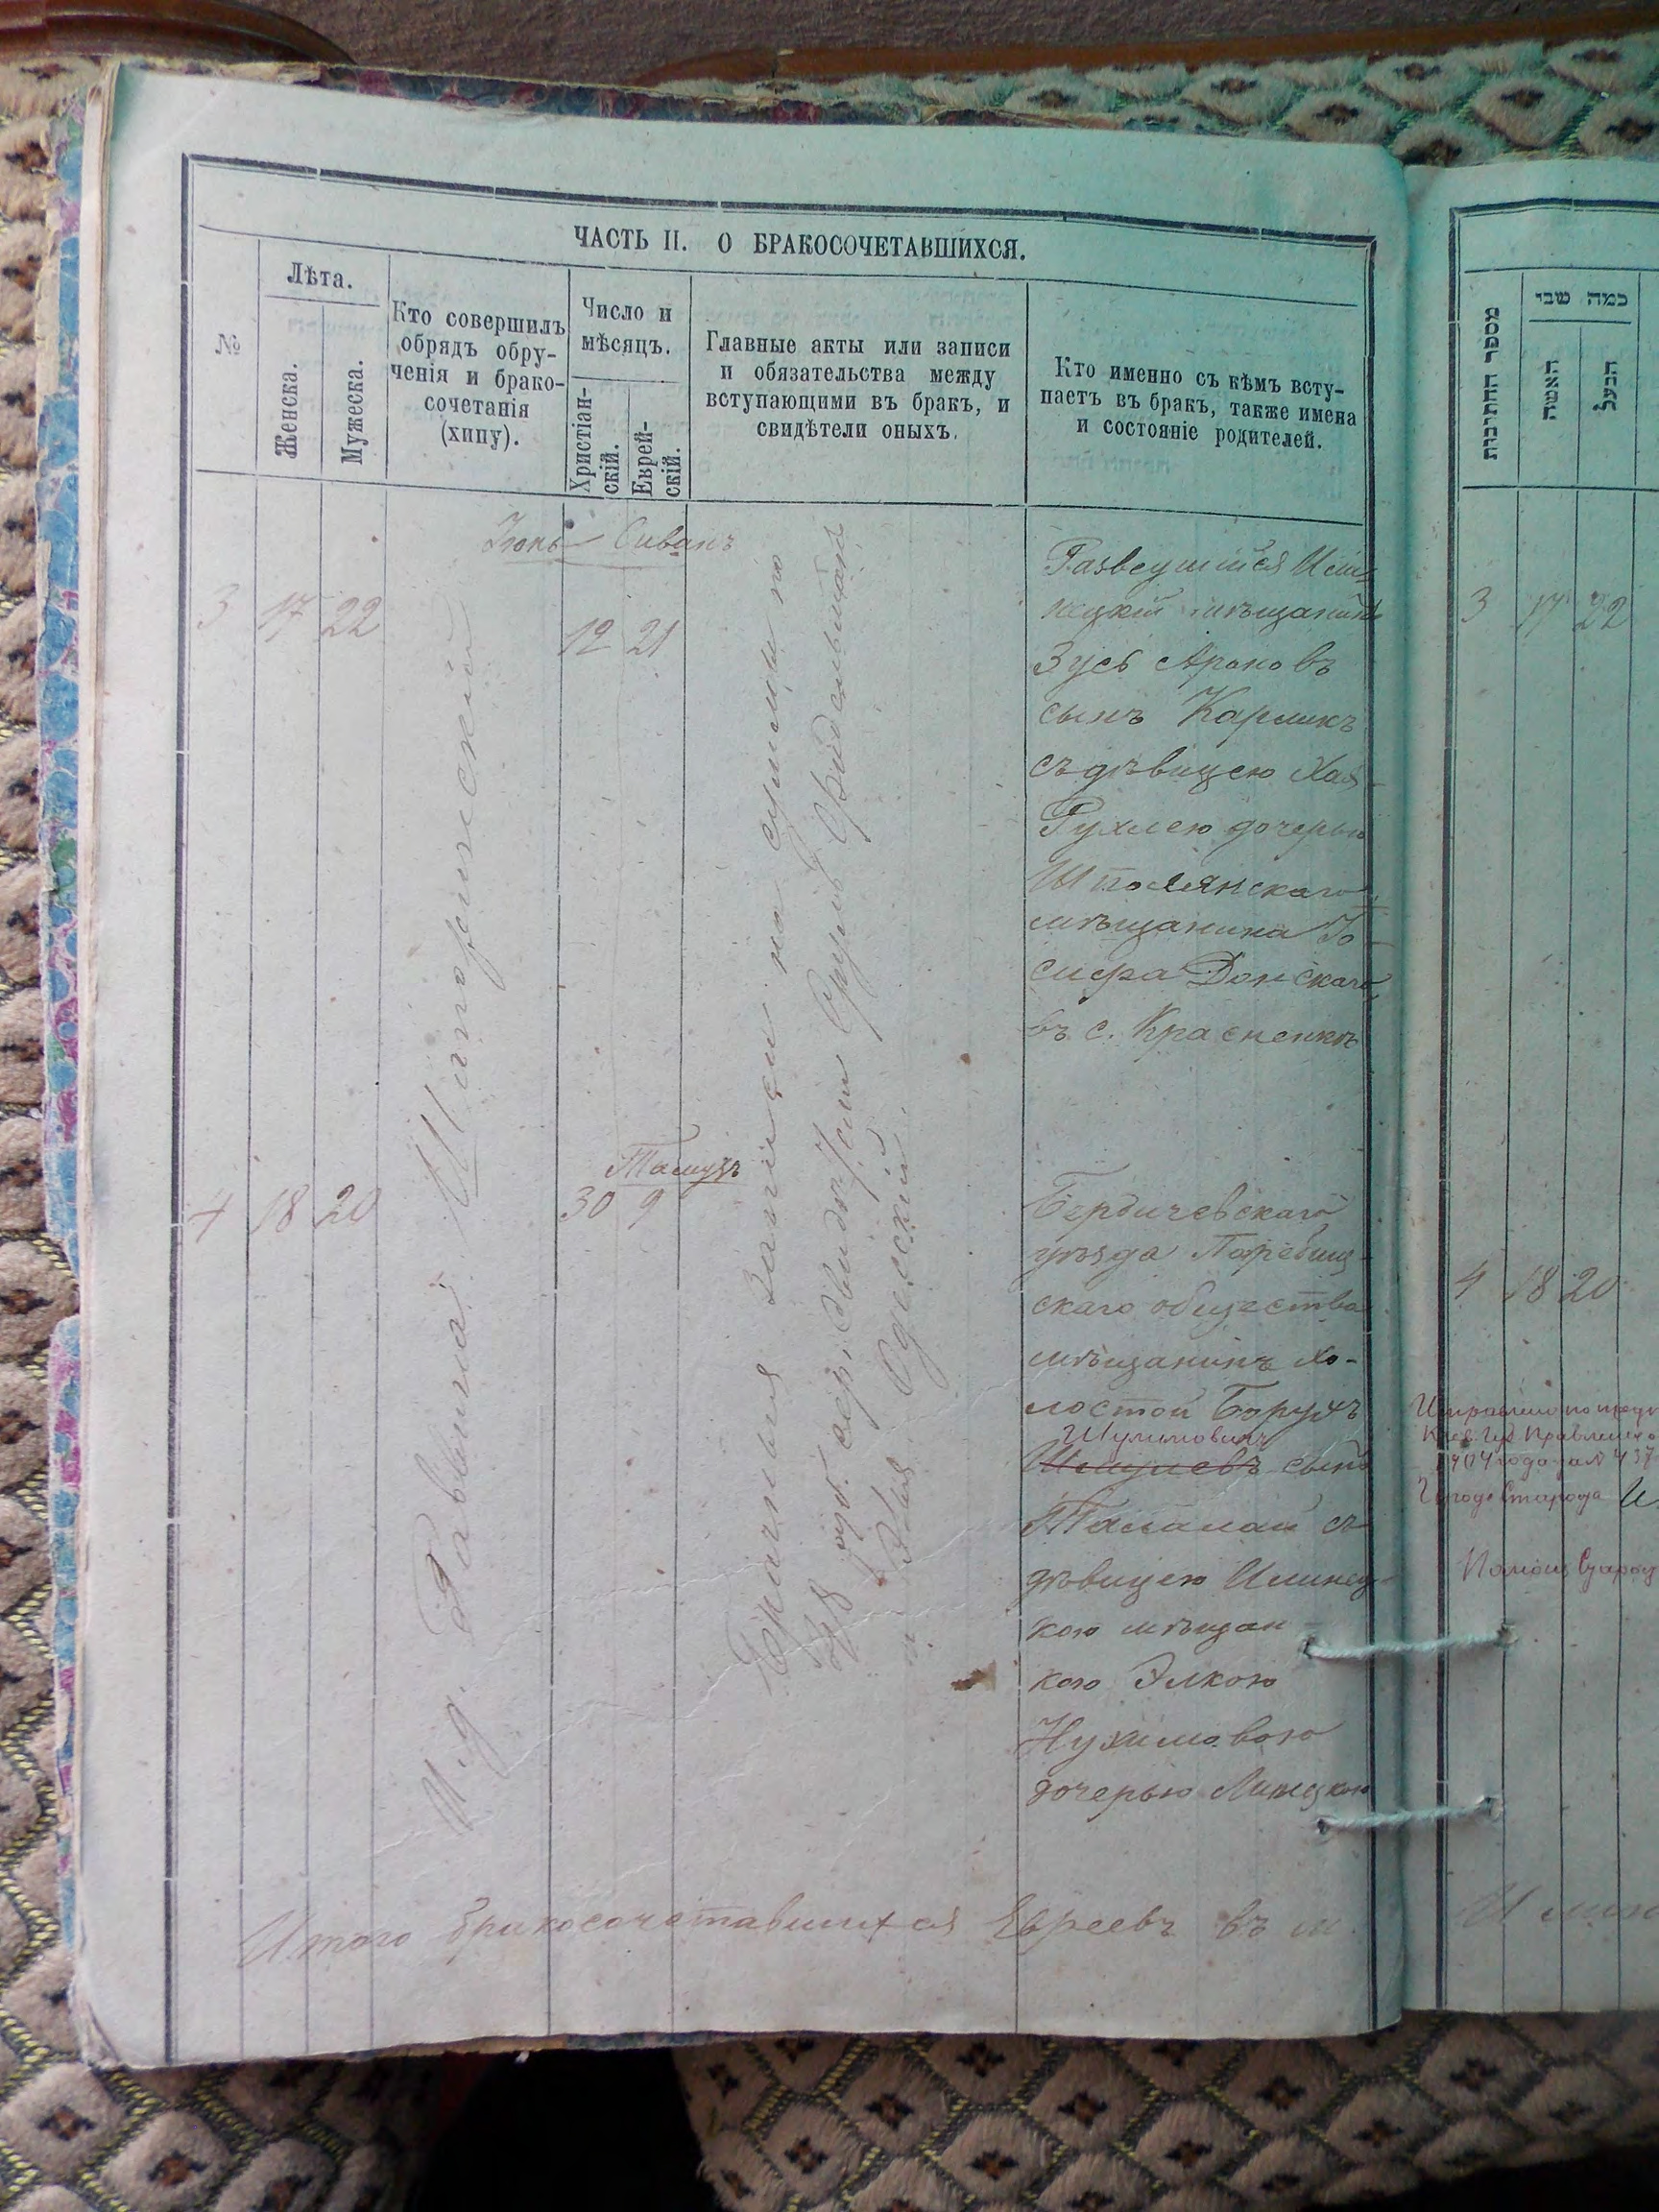 ЧАСТЬ II. О БРАКОСОЧЕТАВШИХСЯ.
№
Лѣта.
Женска.
Мужеска.
Кто совершилъ
обрядъ обру-
ченія и брако-
сочетанія
(хипу).
Число и
мѣсяцъ.
Христіан-
скій.
Еврей-
скій.
Главные акты или записи
и обязательства между
вступающими въ бракъ, и
свидѣтели оныхъ.
Кто именно съ кѣмъ всту-
паетъ въ бракъ, также имена
и состояніе родителей.
Іюнь Сиванъ
3 17 22
12 21
И. д. Раввина
Брачная записи на сумму по
сер. Свидѣт. Срулъ Фридельманъ
и Одесскій.
Разведшійся Илин
нецкій мѣщанинъ
Зусь Ароновъ
сынъ Карликъ
съ дѣвицею Хая-
Рухлею дочерью
Шполянскаго
мѣщанина Іо-
сифа Донскаго
въ с. Красненкѣ
Тамузъ
4 18 20
30 9
Бердичевскаго
уѣзда Погребищ-
скаго общества
мѣщанинъ хо-
лостой Борухъ
Шулимовичъ
сынъ
Таланай съ
дѣвицею Илинец-
кою мѣщан-
кою Элкою
Нухимовою
дочерью Линецкою
Итого бракосочетавшихся Евреевъ въ м.
מספר החתונות
כמה שני
האשה
הבעל
3 17 22
4 18 20
Исправлено по
Кіев. Губ. Правленія
1904 года за № 437
Города Староста